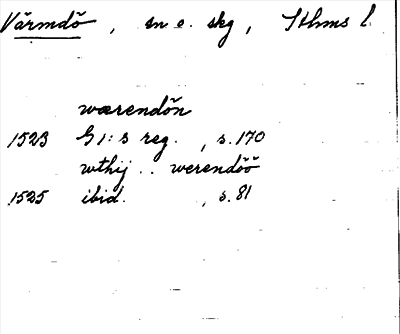 Värmdö, sn o. skg, Sthms l.
wærendön
1523 G 1:s reg., s. 170
wthij .. werendöö
1525 ibid., s. 81